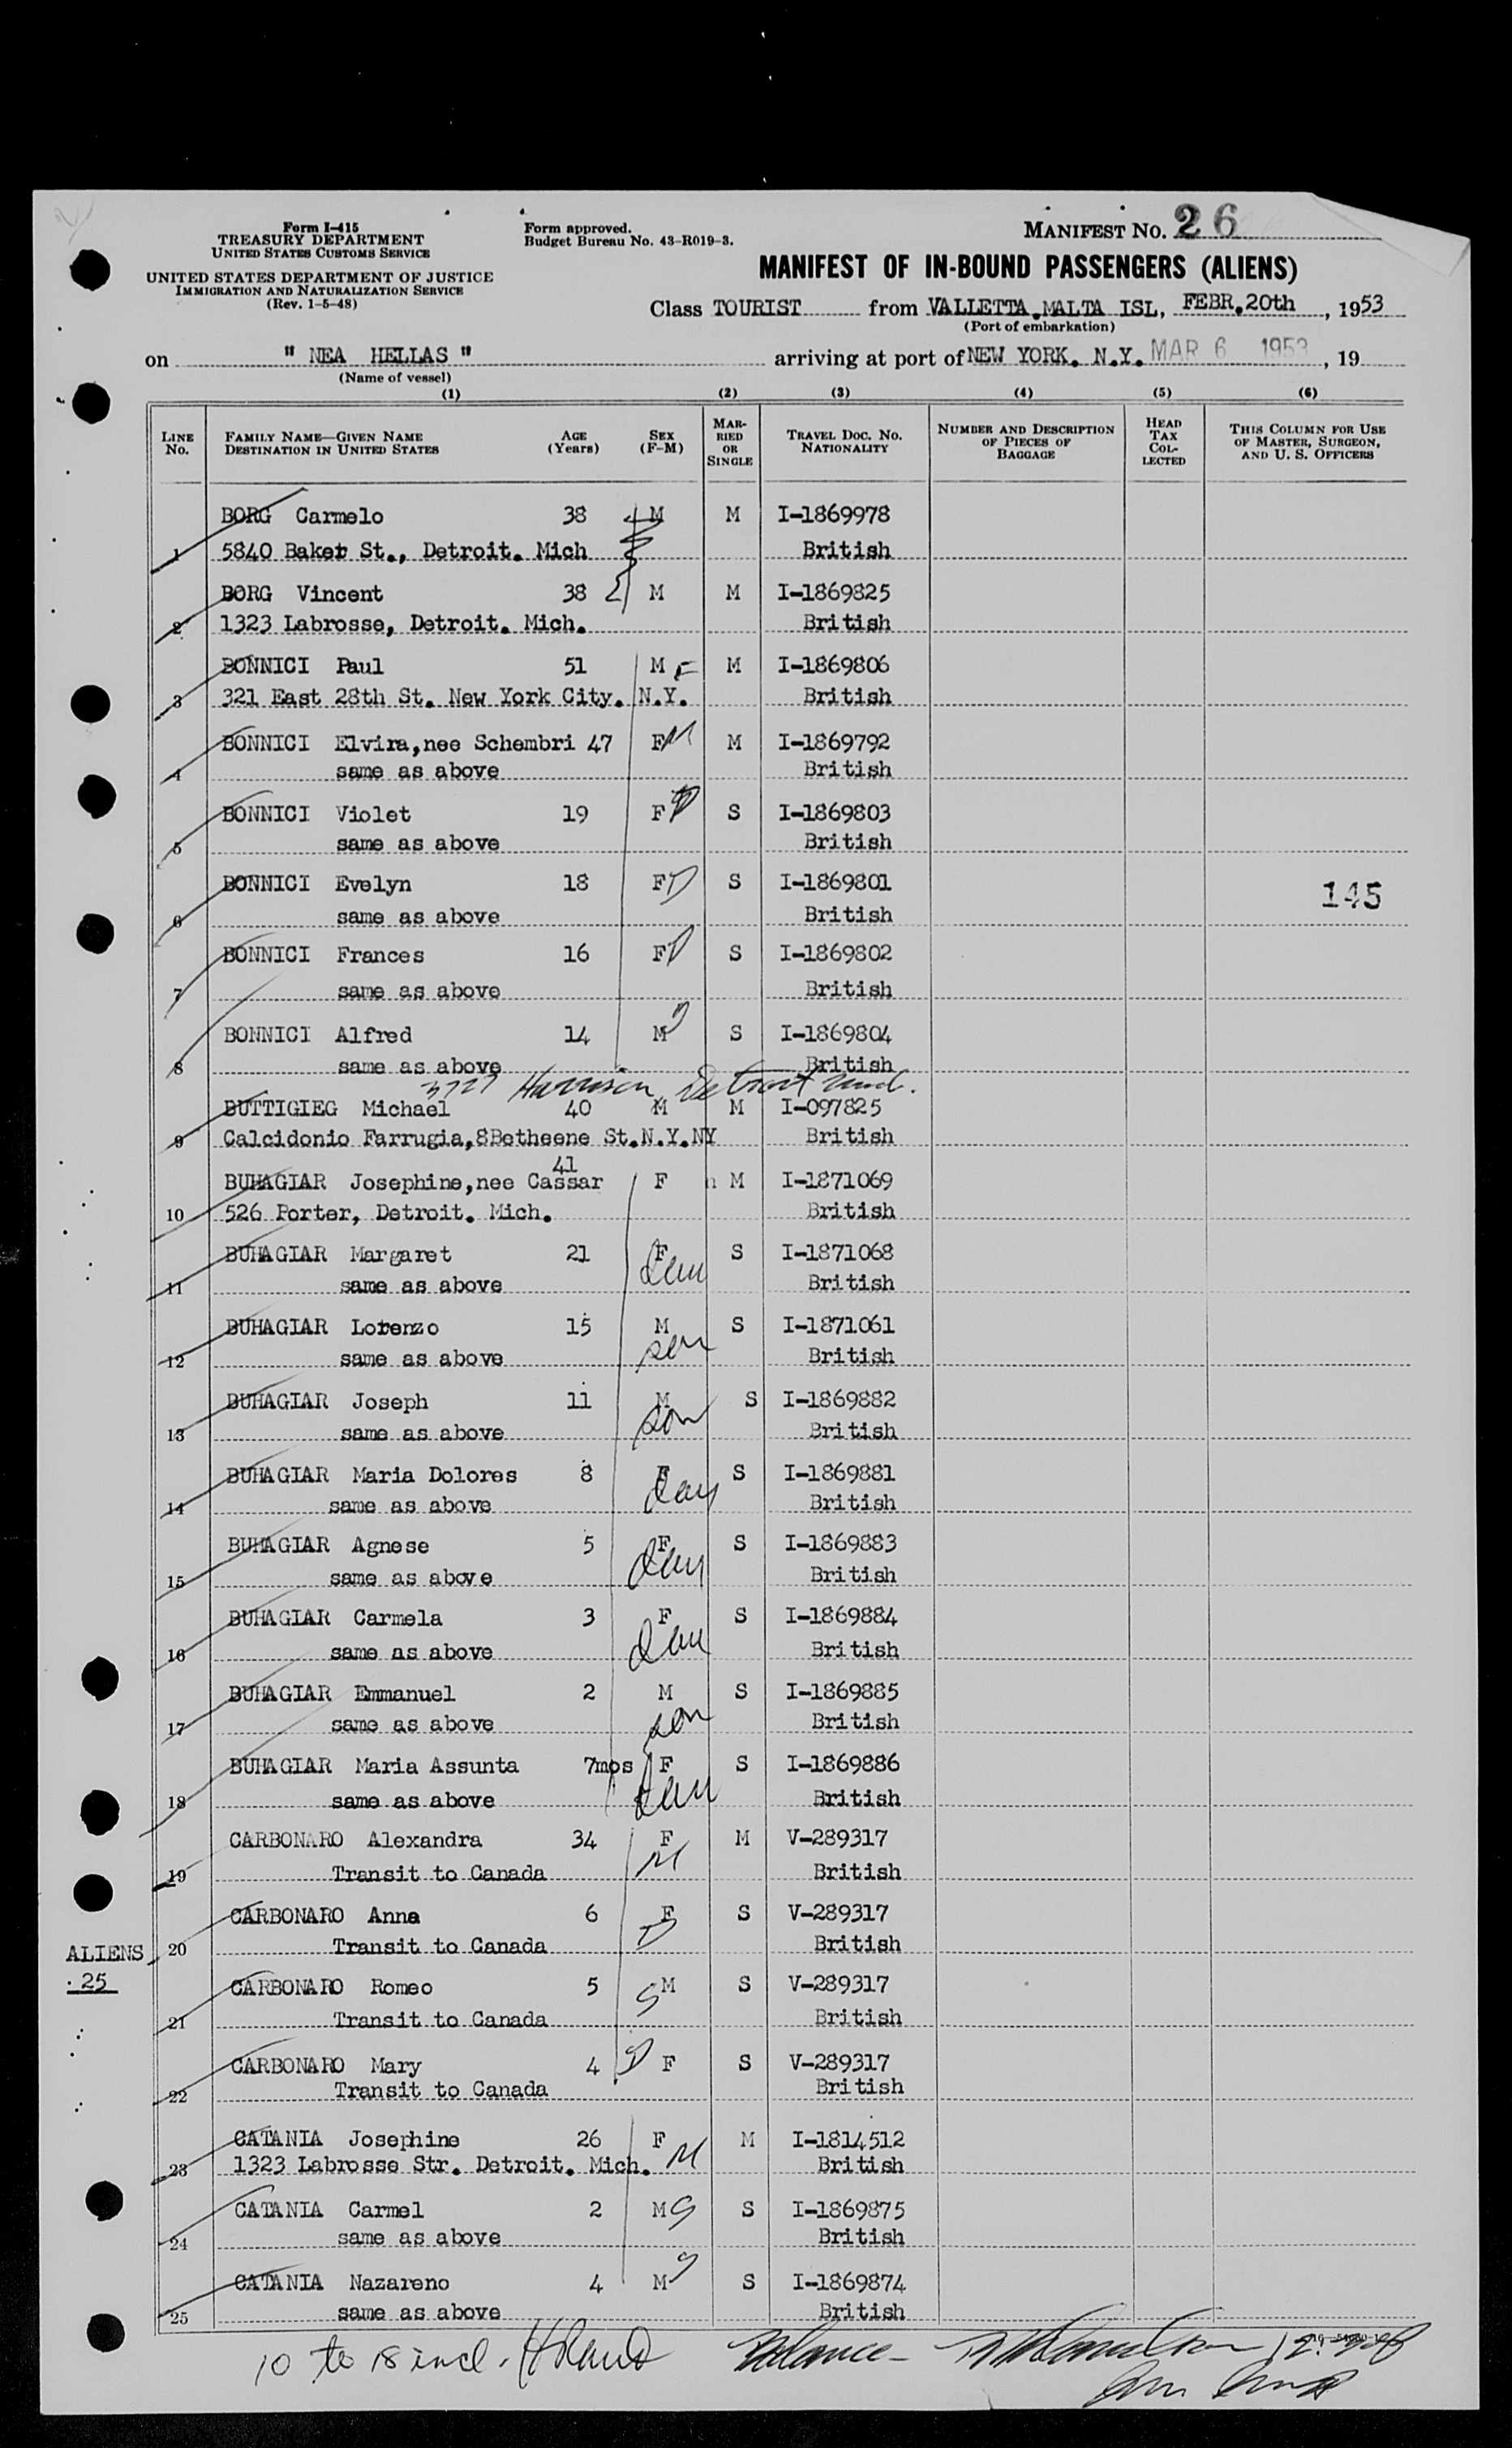 Form I-415
TREASURY DEPARTMENT
UNITED STATES CUSTOMS SERVICE
UNITED STATES DEPARTMENT OF JUSTICE
IMMIGRATION AND NATURALIZATION SERVICE
(Rev. 1-5-48)
Form approved.
Budget Bureau No. 43-R019-3.
MANIFEST NO. 26
MANIFEST OF IN-BOUND PASSENGERS (ALIENS)
Class TOURIST from VALLETTA.MALTA ISL, FEBR.20th, 1953
(Port of embarkation)
on " NEA HELLAS " arriving at port of NEW YORK. N.Y. MAR 6 1953, 19
(Name of vessel)
(1) (2) (3) (4) (5) (6)
LINE No. FAMILY NAME—GIVEN NAME DESTINATION IN UNITED STATES AGE (Years) SEX (F-M) MARRIED OR SINGLE TRAVEL DOC. NO. NATIONALITY NUMBER AND DESCRIPTION OF PIECES OF BAGGAGE HEAD TAX COLLECTED THIS COLUMN FOR USE OF MASTER, SURGEON, AND U. S. OFFICERS
BORG Carmelo 38 M M I-1869978
1 5840 Baker St., Detroit. Mich British
BORG Vincent 38 M M I-1869825
2 1323 Labrosse, Detroit. Mich. British
BONNICI Paul 51 M F M I-1869806
3 321 East 28th St. New York City. N.Y. British
BONNICI Elvira,nee Schembri 47 F M M I-1869792
4 same as above British
BONNICI Violet 19 F D S I-1869803
5 same as above British
BONNICI Evelyn 18 F D S I-1869801
6 same as above British 145
BONNICI Frances 16 F D S I-1869802
7 same as above British
BONNICI Alfred 14 M S S I-1869804
8 same as above British
3727 Harrison Detroit Mich.
BUTTIGIEG Michael 40 M M I-097825
9 Calcidonio Farrugia,8Betheene St.N.Y.NY British
41
BUHAGIAR Josephine,nee Cassar F M I-1871069
10 526 Porter, Detroit. Mich. British
BUHAGIAR Margaret 21 F S I-1871068
11 same as above dau British
BUHAGIAR Lorenzo 15 M S I-1871061
12 same as above son British
BUHAGIAR Joseph 11 M S I-1869882
13 same as above son British
BUHAGIAR Maria Dolores 8 F S I-1869881
14 same as above dau British
BUHAGIAR Agnese 5 F S I-1869883
15 same as above dau British
BUHAGIAR Carmela 3 F S I-1869884
16 same as above dau British
BUHAGIAR Emmanuel 2 M S I-1869885
17 same as above son British
BUHAGIAR Maria Assunta 7mos F S I-1869886
18 same as above dau British
CARBONARO Alexandra 34 F M V-289317
19 Transit to Canada M British
CARBONARO Anna 6 F S V-289317
ALIENS 20 Transit to Canada D British
25
CARBONARO Romeo 5 S M S V-289317
21 Transit to Canada British
CARBONARO Mary 4 D F S V-289317
22 Transit to Canada British
CATANIA Josephine 26 F M I-1814512
23 1323 Labrosse Str. Detroit. Mich. M British
CATANIA Carmel 2 M S S I-1869875
24 same as above British
CATANIA Nazareno 4 M S S I-1869874
25 same as above British
10 to 18 incl.
Balance -